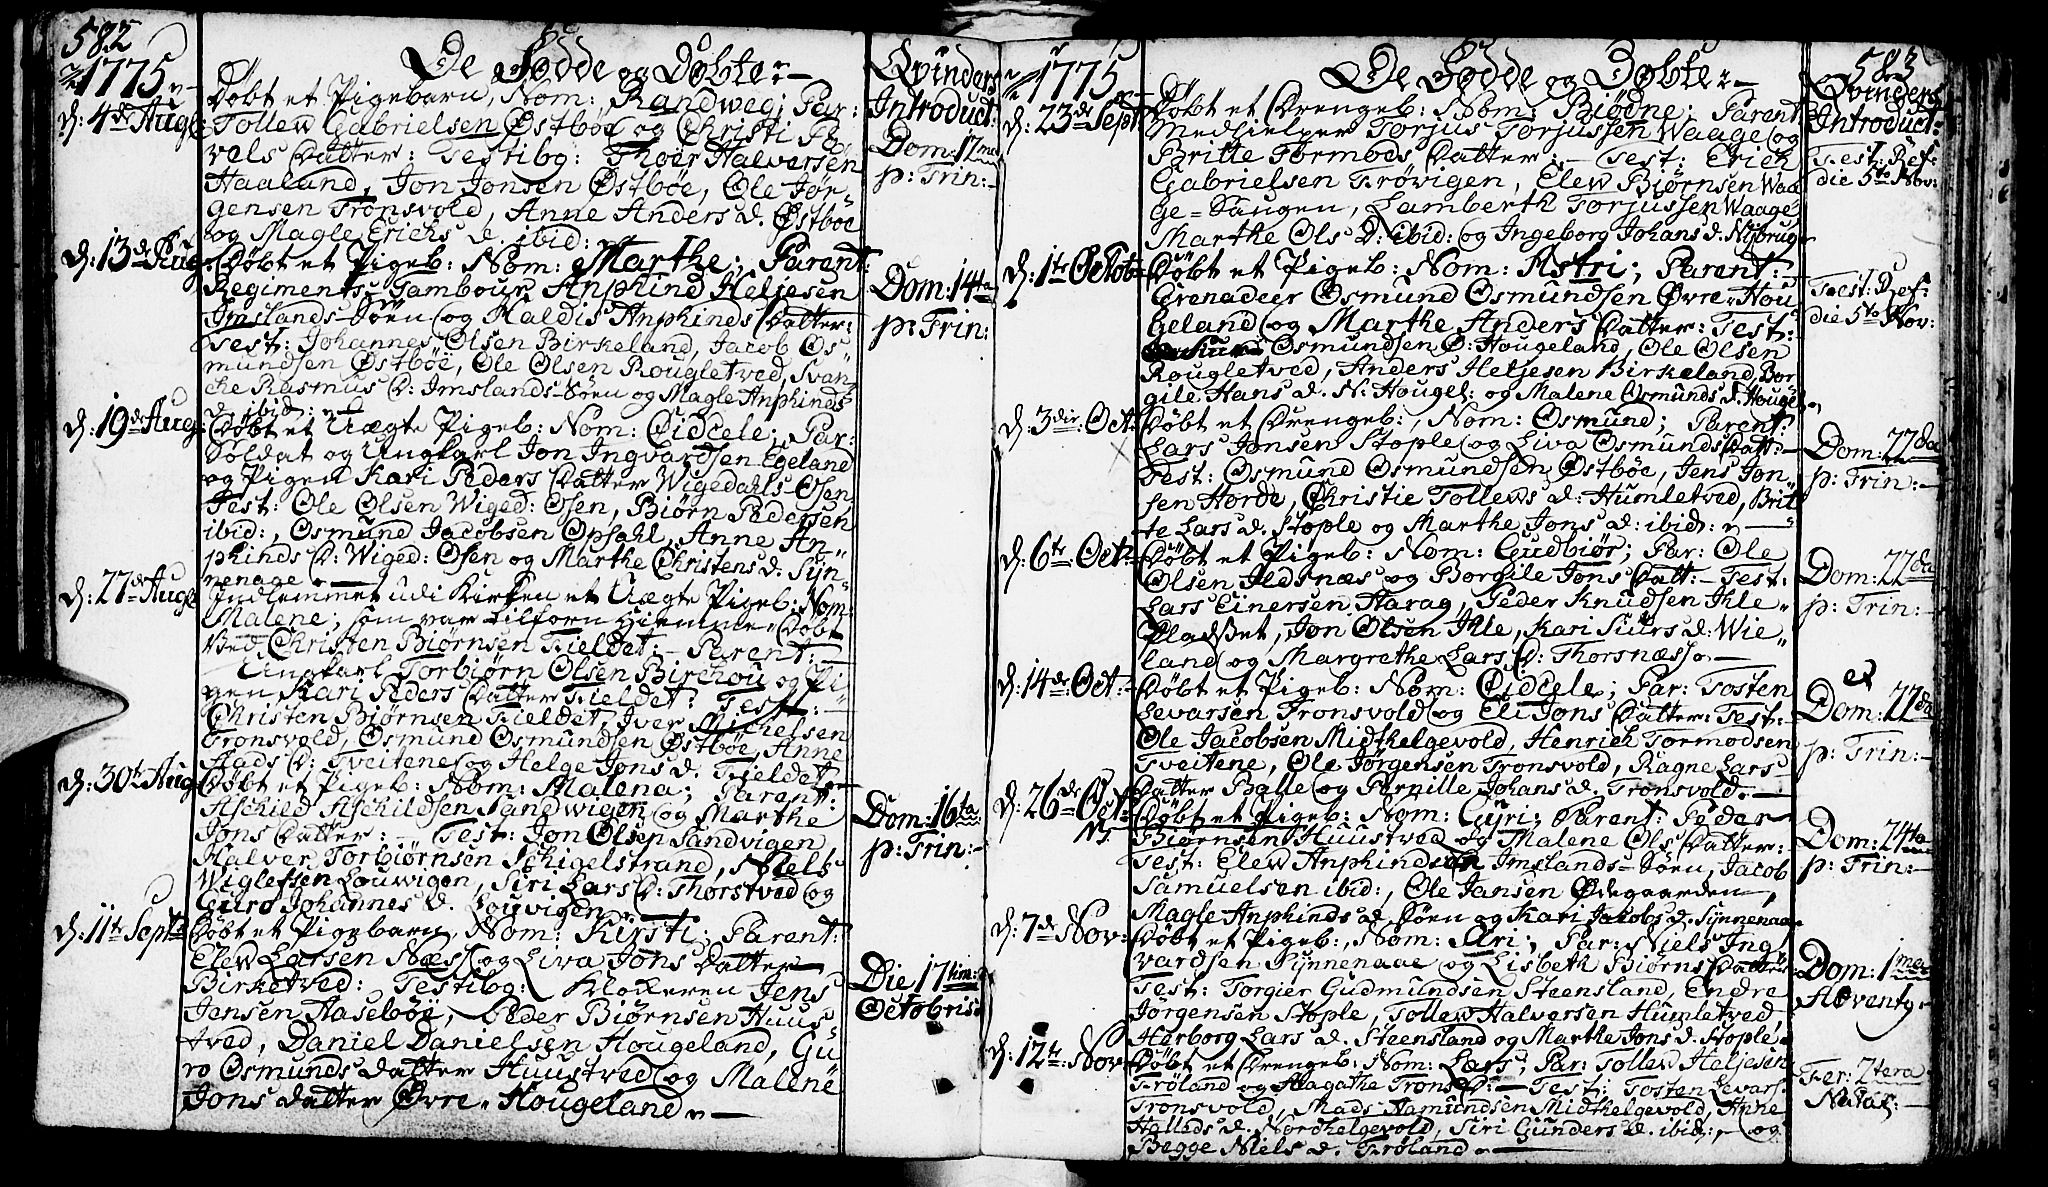 582
1775
De Fødde og Døbte
Qvinders
Introduct:
d: 4de Aug:
Døbt et Pigebarn, Nom: Randweg; Par:
Tollew Gabrielsen Østbøe og Christi
vels Datter: Testibg: Thoer Halversen
Haaland, Jon Jonsen Østbøe, Ole Jør
gensen Tronsvold, Anne Anders d. Østboe
og Magle Erichs d. ibid:
Dom: 17ma
p: Trin:
d: 13de Aug:
Døbt et Pigeb: Nom: Marthe; Parent:
Regiments Tambour Anphind Heljesen
Imslands Søen og Maldis Anphinds Datter:
Test: Johannes Olsen Birkeland, Jacob Os
mundsen Østbøe, Ole Olsen Rougletved, Svan
che Rasmus D: Imslands-Søen og Magle Anphinds
d. ibid:
Dom: 14ta
p: Trin:
d: 19de Aug:
Døbt et Uægte Pigeb: Nom: Cidcele; Par:
Soldat og Ungkarl Jon Ingvardsen Egeland
og Pigen Kari Peders Datter Wigedahls-Osen
Test: Ole Olsen Wiged: Osen, Biørn Pedersen
ibid:, Osmund Jacobsen Opsahl, Anne An
phinds D: Wiged: Osen og Marthe Christens d. Syn
nenage
d: 27de Aug:
Indlemmet udi Kirken et Uægte Pigeb: Nom:
Malene; som var tilforn Hiemme-Døbt
Ved Christen Biørnsen Fieldet: Parent:
Ungkarl Torbiørn Olsen Birchou og Pi
gen Kari Peders Datter Fieldet: Test:
Christen Biørnsen Fieldet, Iver Michelsen
Tronsvold, Osmund Osmundsen Østbøe, Anne
Mads D: Tveitene og Helge Jons d. Fieldet
d: 30te Aug:
Døbt et Pigeb: Nom: Malena; Parent:
Aschild Aschildsen Sandwigen og Marthe
Jons Datter: Test: Jon Olsen Sandvigen
Halver Torbiørnsen Schigelstrand, Niels
Wiglefsen Louwigen, Siri Lars D: Thorstved og
Guro Johannes d. Louvigen
Dom: 16ta
p: Trin:
d: 11te Sept:
Døbt et Pigebarn, Nom: Kirsti; Parent:
Elew Larsen Næss og Liva Jons Datter
Birketved: Testibg: Klockeren Jens
Jensen Haseboe, Peder Biørnsen Huus
tved, Daniel Danielsen Hougeland, Gu
ro Osmunds datter Huustved og Malene
Jons datter Øvre-Hougeland
Die 17tim:
Octobris
1775
De Fødde og Døbte
583
Qvinders
Introduct:
d: 23de Sept:
Døbt et Drengeb: Nom: Biødne; Parent
Medhielper Torjus Torjussen Waage og
Britte Tormods Datter: Test: Erich
Gabrielsen Frøvigen, Elew Biørnsen Waa
ge-Saugen, Lamberth Torjussen Waage
Marthe Ols D: ibid: og Ingeborg Johans d. Nybrug
Fest: Ref:
die 5to Nov:
d: 1te Octob:
Døbt et Pigeb: Nom: Astri; Parent:
Grenadeer Osmund Osmundsen Øvre-Hou
geland og Marthe Anders Datter: Test:
Osmundsen Ø: Hougeland, Ole Olsen
Rougletved, Anders Heljesen Birkeland, Bor
gile Hans d. N: Hougel: og Malene Osmunds d. Hougel:
Fest: Ref:
die 5to Nov:
d: 3die Oct:
Døbt et Drengeb:, Nom: Osmund; Parent:
Lars Jonsen Stople og Liva Osmunds Datt:
Test: Osmund Osmundsen Østbøe, Jens Jon
sen Horde, Christie Tollews d: Humletved, Brit
te Lars d. Stople og Marthe Jons d: ibid:
Dom: 22da
p: Trin:
d: 6te Oct:
Døbt et Pigeb: Nom: Gudbiør; Par: Ole
Olsen Ildsnæs og Borgile Jons Datt: Test:
Lars Einersen Harag, Peder Knudsen Ihle
pladset, Jon Olsen Ihle, Kari Siurs d: Wie
land og Margrethe Lars D: Thorsnæss
Dom: 22da
p: Trin:
d: 14de Oct:
Døbt et Pigeb: Nom: Cidcele; Par: Tosten
Levarsen Tronsvold og Eli Jons Datter: Test:
Ole Jacobsen Midthelgevold, Henrich Tormodsen
Tveitene, Ole Jørgensen Tronsvold, Ragne Lars
Datter Balle og Pernille Johans d. Tronsvold
et
Dom: 22da
p: Trin:
d: 26de Oct:
Døbt et Pigeb: Nom: Guri; Parent: Peder
Biørnsen Huustved og Malene Ols Datter:
Test: Elew Anphindsen Imslands-Søen, Jacob
Samuelsen ibid:, Ole Jansen Ødegaarden,
Magle Anphinds d. Søen og Kari Jakobs d. Synnenaa
Dom: 24ta
p: Trin:
d: 7de Nov:
Døbt et Pigeb:, Nom: Ari; Par: Niels Ing
vardsen Synnenaae og Lisbeth Biørns Datter
Test: Torgier Gudmundsen Steensland, Endre
Jørgensen Stople, Tollew Halversen Humletved
Herborg Lars d. Steensland og Marthe Jons d. Stople
Dom: 1ma
Adventq
d: 12te Nov:
Døbt et Drengeb: Nom: Lars; Par: Tollew Heljesen
Frøland og Aagathe Trons D: Test: Tosten Levars:
Tronsvold, Mads Aamundsen Midthelgevold, Anne
Helleds d. Nordhelgevold, Siri Gunders d. ibid: og
Begge Niels d. Frøland
Fer: 2tera
Natal: